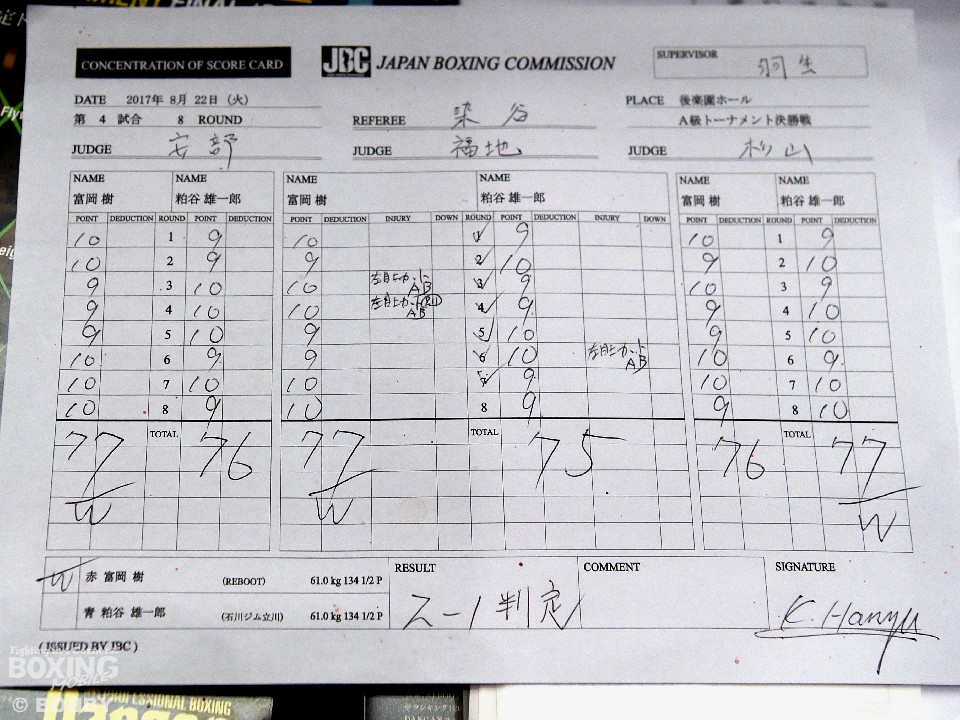 CONCENTRATION OF SCORE CARD
JBC JAPAN BOXING COMMISSION
SUPERVISOR 羽生
DATE 2017年 8月 22日 (火)
PLACE 後楽園ホール
第 4 試合 8 ROUND
REFEREE 染谷
A級トーナメント決勝戦
JUDGE 安部
JUDGE 福地
JUDGE 杉山
NAME NAME NAME NAME NAME NAME
富岡 樹 粕谷 雄一郎 富岡 樹 粕谷 雄一郎 富岡 樹 粕谷 雄一郎
POINT DEDUCTION ROUND POINT DEDUCTION POINT DEDUCTION INJURY DOWN ROUND POINT DEDUCTION INJURY DOWN POINT DEDUCTION ROUND POINT DEDUCTION
10 1 9 10 1 9 10 1 9
10 2 9 9 2 10 9 2 10
9 3 10 10 左目上カット AB 3 9 10 3 9
9 4 10 10 左目上カット AB 4 9 9 4 10
9 5 10 9 5 10 9 5 10
10 6 9 9 6 10 左目上カット AB 10 6 9
10 7 10 10 7 9 10 7 10
10 8 9 10 8 9 9 8 10
77 TOTAL 76 77 TOTAL 75 76 TOTAL 77
W W W
W 赤 富岡 樹 (REBOOT) 61.0 kg 134 1/2 P
青 粕谷 雄一郎 (石川ジム立川) 61.0 kg 134 1/2 P
RESULT
2-1 判定
COMMENT
SIGNATURE
K. Hanyu
( ISSUED BY JBC )
BOXING
MOBILE
© BOBBY
PROFESSIONAL BOXING